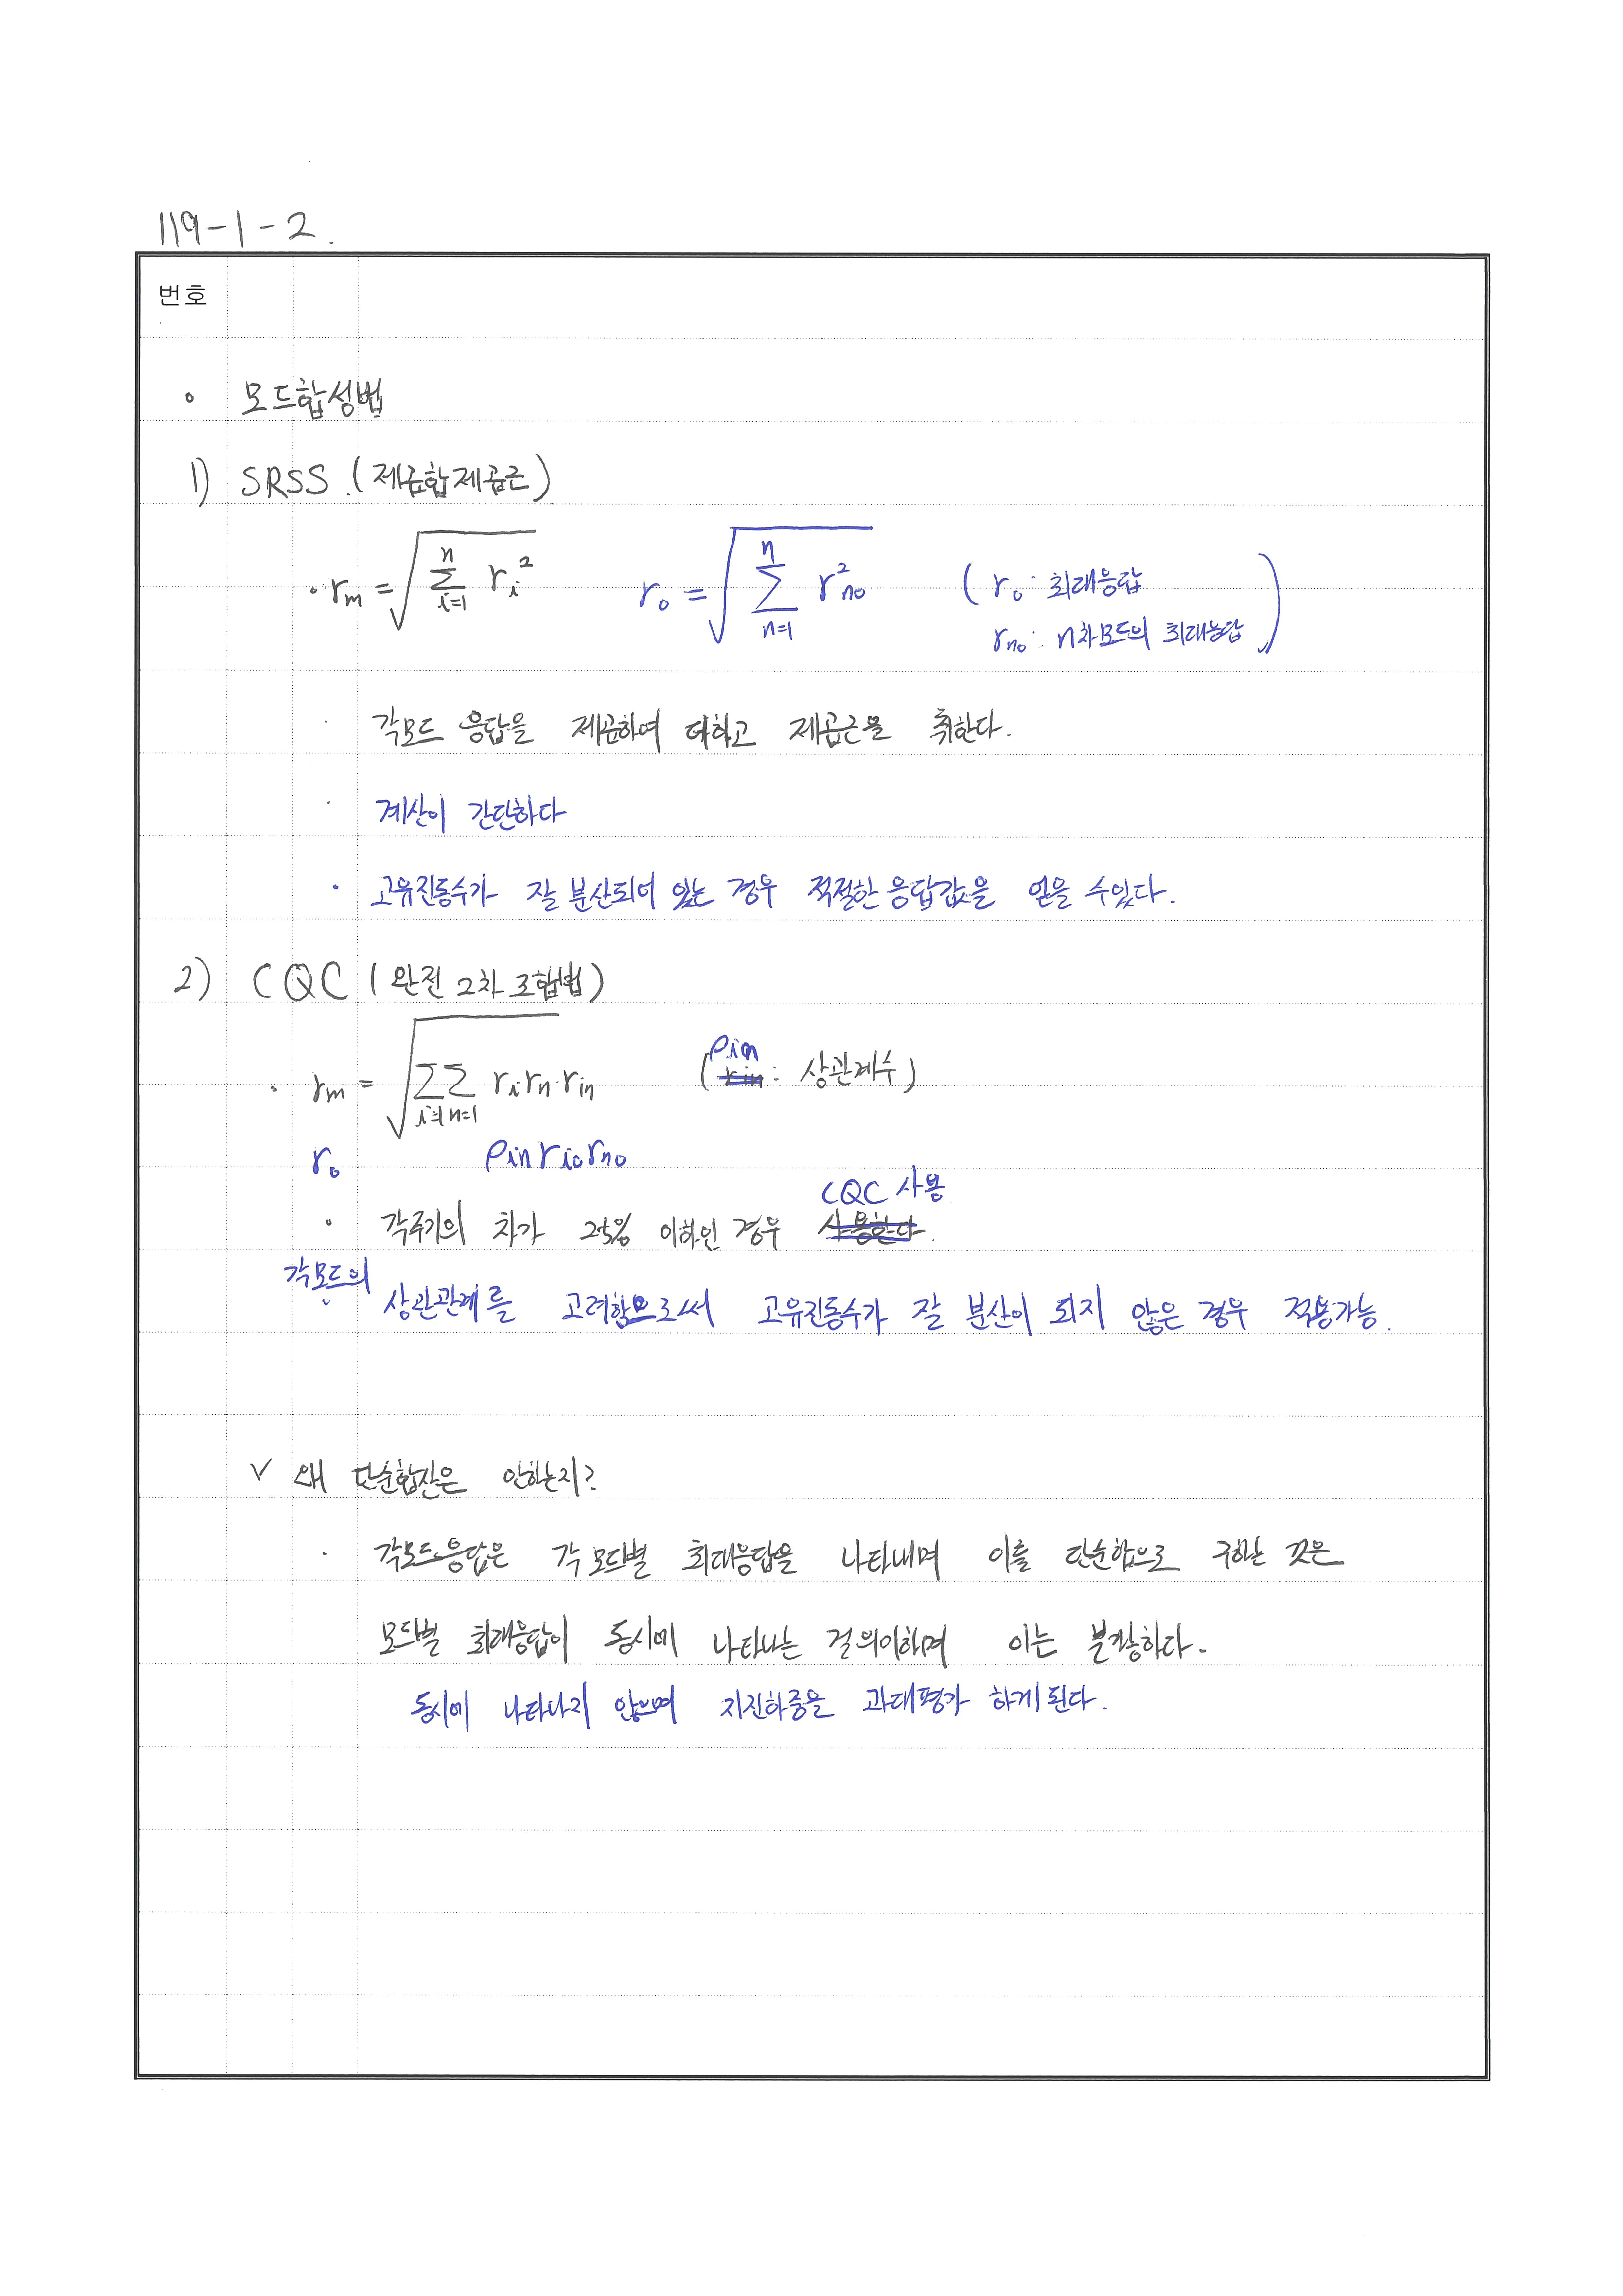 119-1-2.
번호
• 모드합성법
1) SRSS (제곱합제곱근)
· rm = √(Σ(i=1→n) ri²) r₀ = √(Σ(n=1→n) r²no) (r₀: 최대응답
rno: n차모드의 최대응답)
· 각모드 응답을 제곱하여 더하고 제곱근을 취한다.
· 계산이 간단하다
· 고유진동수가 잘 분산되어 있는 경우 적절한 응답값을 얻을 수있다.
2) CQC (완전 2차 조합법)
ρin
· rm = √(Σ(i=1) Σ(n=1) ri rn rin) (rin : 상관계수)
r₀ ρin rio rno
CQC 사용
· 각주기의 차가 25% 이하인 경우 사용한다.
각모드의
상관관계를 고려함으로써 고유진동수가 잘 분산이 되지 않은 경우 적용가능.
√ 왜 단순합산은 안하는지?
· 각모드응답은 각 모드별 최대응답을 나타내며 이를 단순합으로 구하는 것은
모드별 최대응답이 동시에 나타나는 걸 의미하며 이는 불가능하다.
동시에 나타나지 않으며 지진하중을 과대평가 하게된다.